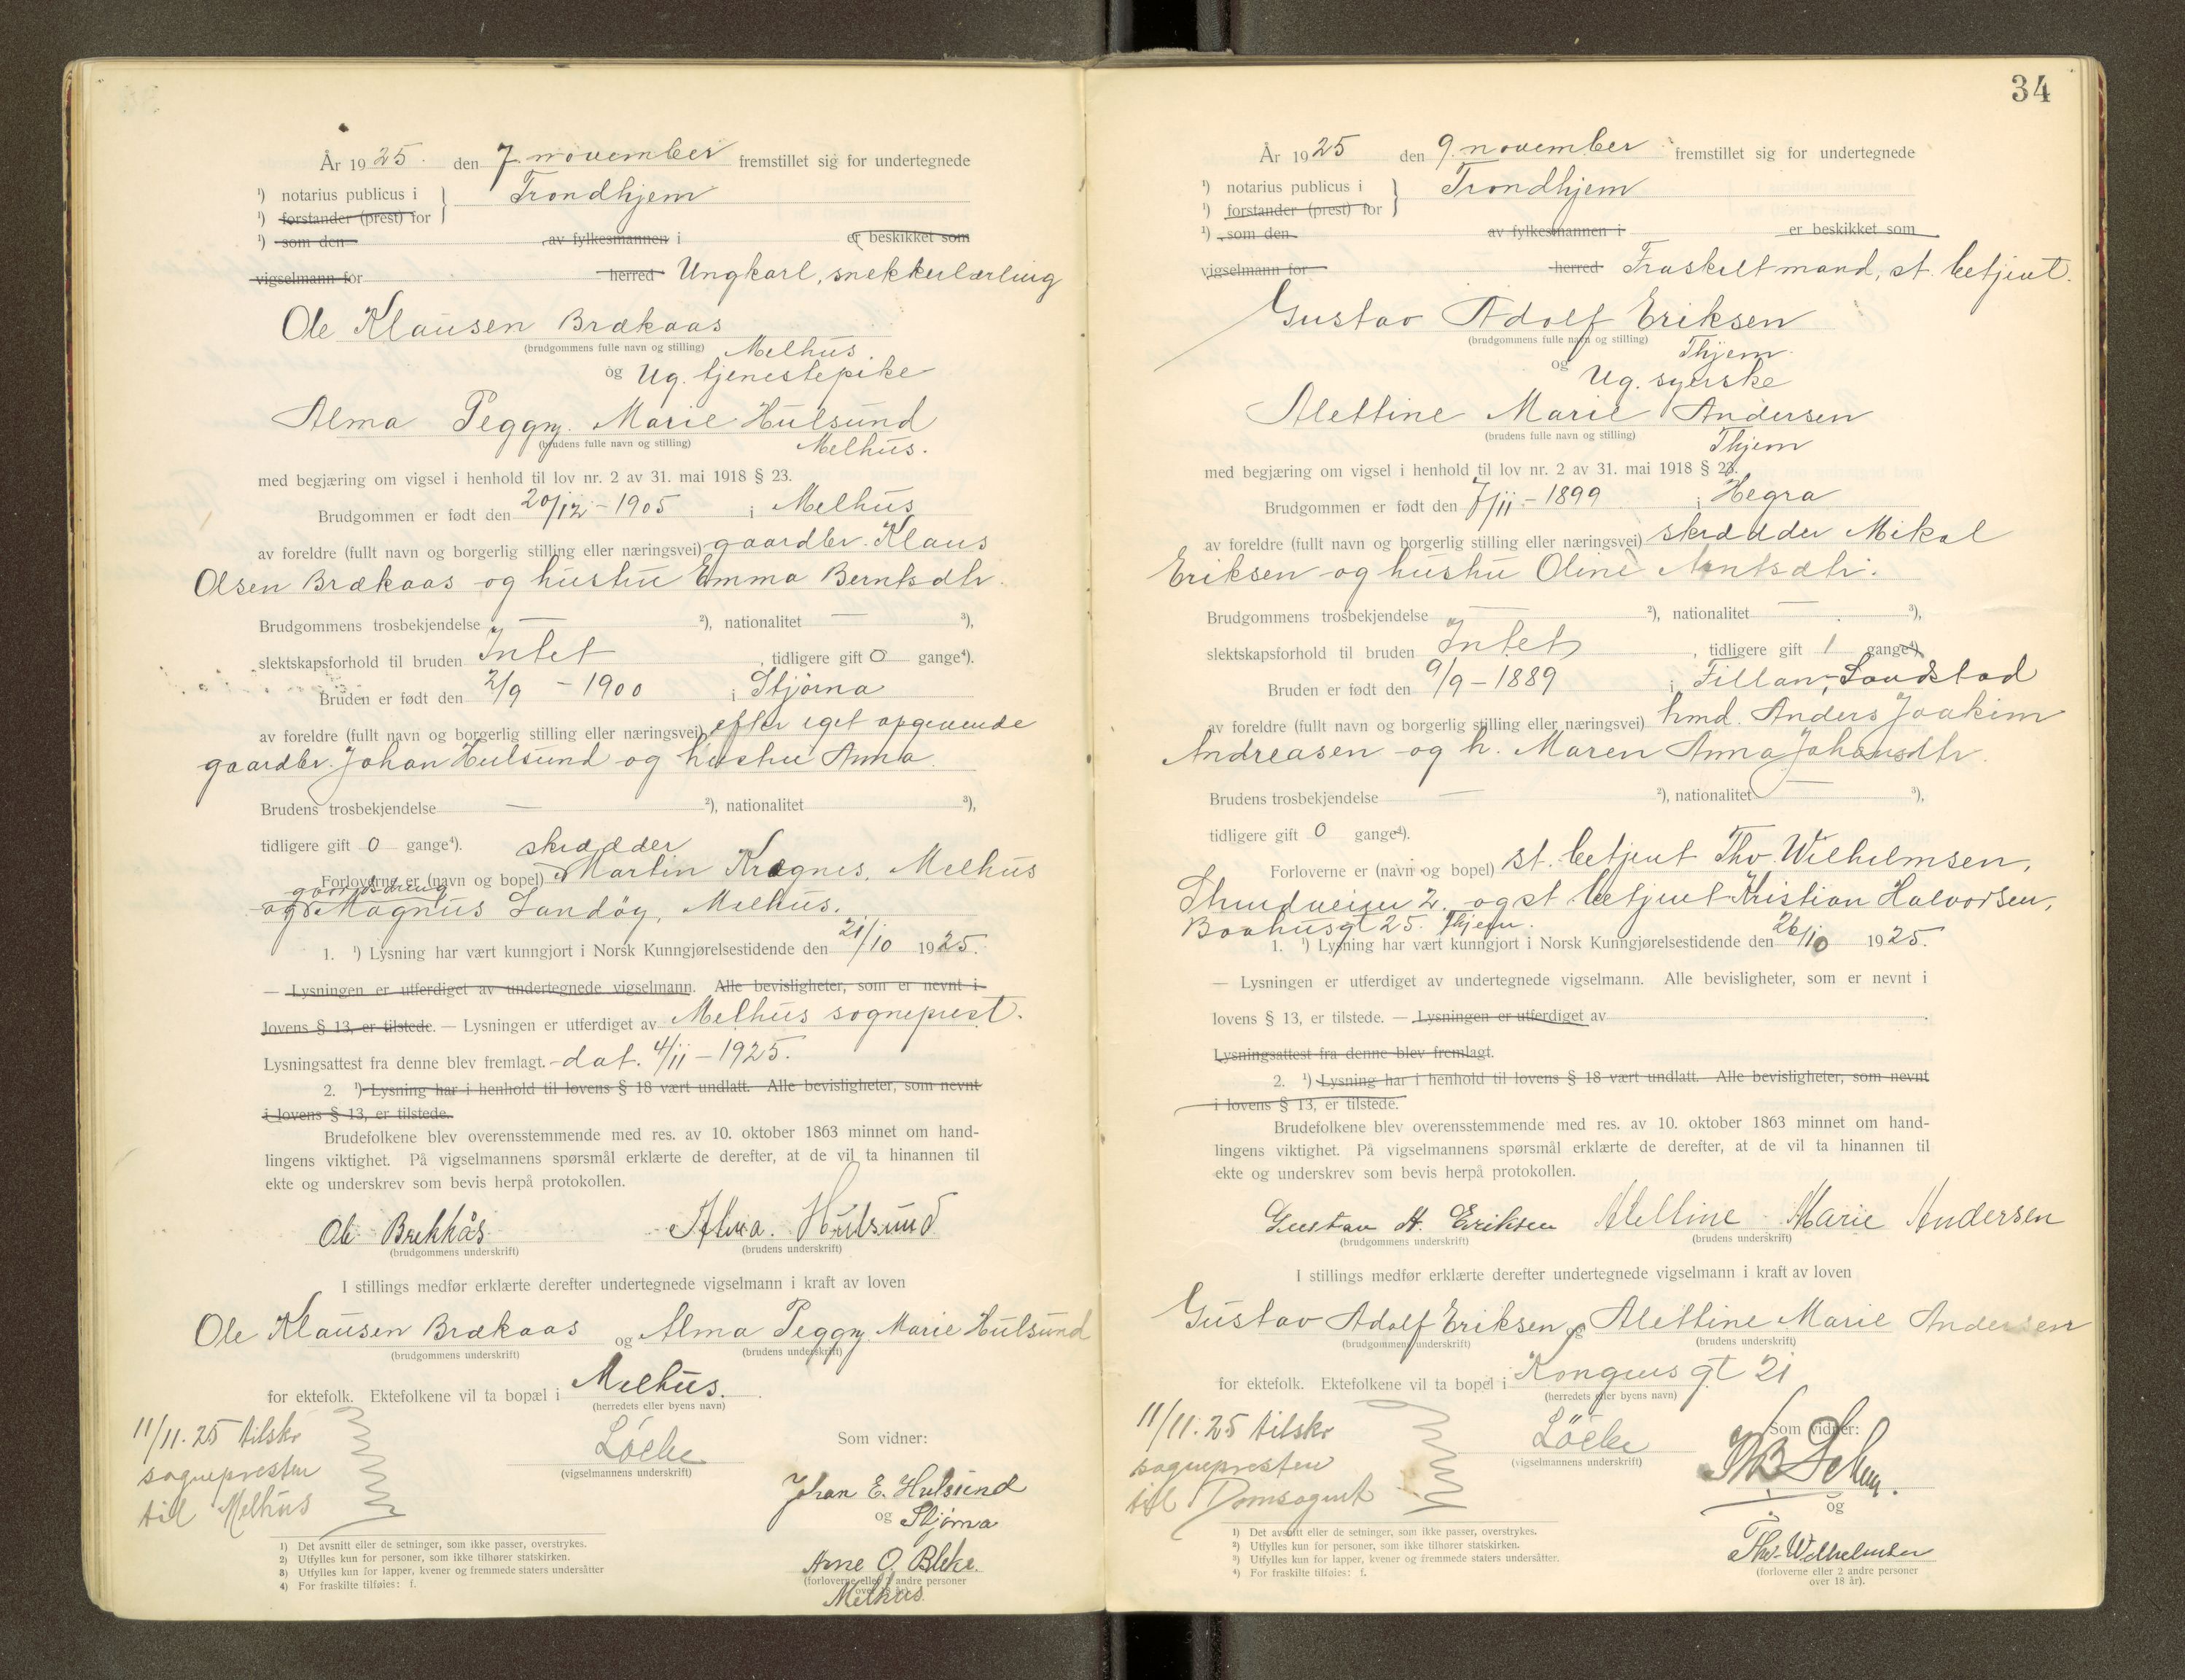 År 1925. den 7. november fremstillet sig for undertegnede
¹) notarius publicus i } Trondhjem
¹) forstander (prest) for
¹) som den av fylkesmannen i er beskikket som
vigselmann for herred Ungkarl, snekkerlærling
Ole Klausen Brækaas
(brudgommens fulle navn og stilling) Melhus.
og Ug. tjenestepike
Alma Peggy Marie Hulsund
(brudens fulle navn og stilling) Melhus.
med begjæring om vigsel i henhold til lov nr. 2 av 31. mai 1918 § 23.
Brudgommen er født den 20/12 - 1905 i Melhus
av foreldre (fullt navn og borgerlig stilling eller næringsvei) gaardbr. Klaus
Olsen Brækaas og hustru Emma Berntsdtr.
Brudgommens trosbekjendelse — ²), nationalitet — ³),
slektskapsforhold til bruden Intet, tidligere gift 0 gange⁴).
Bruden er født den 2/9 - 1900 i Stjørna
av foreldre (fullt navn og borgerlig stilling eller næringsvei) efter eget opgivende
gaardbr. Johan Hulsund og hustru Anna.
Brudens trosbekjendelse — ²), nationalitet ³),
tidligere gift 0 gange⁴). skrædder
Forloverne er (navn og bopel) Martin Krægnes, Melhus
gaardsdreng
og Magnus Sandøy, Melhus.
1. ¹) Lysning har vært kunngjort i Norsk Kunngjørelsestidende den 21/10 1925.
— Lysningen er utferdiget av undertegnede vigselmann. Alle bevisligheter, som er nevnt i
lovens § 13, er tilstede. — Lysningen er utferdiget av Melhus sogneprest.
Lysningsattest fra denne blev fremlagt. - dat. 4/11 - 1925.
2. ¹) Lysning har i henhold til lovens § 18 vært undlatt. Alle bevisligheter, som nevnt
i lovens § 13, er tilstede.
Brudefolkene blev overensstemmende med res. av 10. oktober 1863 minnet om hand-
lingens viktighet. På vigselmannens spørsmål erklærte de derefter, at de vil ta hinannen til
ekte og underskrev som bevis herpå protokollen.
Ole Brekkås Alma Hulsund
(brudgommens underskrift) (brudens underskrift)
I stillings medfør erklærte derefter undertegnede vigselmann i kraft av loven
Ole Klausen Brækaas og Alma Peggy Marie Hulsund
(brudgommens underskrift) (brudens underskrift)
for ektefolk. Ektefolkene vil ta bopæl i Melhus.
(herredets eller byens navn)
11/11.25 tilskr
sognepresten
til Melhus
Löcke
(vigselmannens underskrift)
Som vidner:
Johan E. Hulsund
og Stjørna
Arne O. Bleke.
(forloverne eller 2 andre personer
over 18 år).
Melhus.
¹) Det avsnitt eller de setninger, som ikke passer, overstrykes.
²) Utfylles kun for personer, som ikke tilhører statskirken.
³) Utfylles kun for lapper, kvener og fremmede staters undersåtter
⁴) For fraskilte tilføies: f.
34
År 1925 den 9. november fremstillet sig for undertegnede
¹) notarius publicus i } Trondhjem
¹) forstander (prest) for
¹) som den av fylkesmannen i er beskikket som
vigselmann for herred Fraskilt mand, st. betjent.
Gustav Adolf Eriksen
(brudgommens fulle navn og stilling) Thjem.
og Ug. syerske
Alettine Marie Andersen
(brudens fulle navn og stilling) Thjem
med begjæring om vigsel i henhold til lov nr. 2 av 31. mai 1918 § 23.
Brudgommen er født den 7/11 - 1899 i Hegra
av foreldre (fullt navn og borgerlig stilling eller næringsvei) skrædder Mikal
Eriksen og hustru Oline Arntsdtr.
Brudgommens trosbekjendelse — ²), nationalitet — ³),
slektskapsforhold til bruden Intet, tidligere gift 1 gange⁴).
Bruden er født den 9/9 - 1889 i Fillan, Sandstad
av foreldre (fullt navn og borgerlig stilling eller næringsvei) hmd. Anders Joakim
Andreasen og h. Maren Anna Johansdtr.
Brudens trosbekjendelse — ²), nationalitet — ³),
tidligere gift 0 gange⁴).
Forloverne er (navn og bopel) st. betjent Thv. Wilhelmsen,
2. og st. betjent Kristian Halvorsen,
Baahusgt 25. Thjem.
1. ¹) Lysning har vært kunngjort i Norsk Kunngjørelsestidende den 26/10 1925.
— Lysningen er utferdiget av undertegnede vigselmann. Alle bevisligheter, som er nevnt i
lovens § 13, er tilstede. — Lysningen er utferdiget av
Lysningsattest fra denne blev fremlagt.
2. ¹) Lysning har i henhold til lovens § 18 vært undlatt. Alle bevisligheter, som nevnt
i lovens § 13, er tilstede.
Brudefolkene blev overensstemmende med res. av 10. oktober 1863 minnet om hand-
lingens viktighet. På vigselmannens spørsmål erklærte de derefter, at de vil ta hinannen til
ekte og underskrev som bevis herpå protokollen.
Gustav A. Eriksen Alettine Marie Andersen
(brudgommens underskrift) (brudens underskrift)
I stillings medfør erklærte derefter undertegnede vigselmann i kraft av loven
Gustav Adolf Eriksen og Alettine Marie Andersen
(brudgommens underskrift) (brudens underskrift)
for ektefolk. Ektefolkene vil ta bopel i Kongens gt 21
(herredets eller byens navn)
11/11.25 tilskr
sognepresten
til Domsognet
Löcke
(vigselmannens underskrift)
Som vidner:
og
Thv. Wilhelmsen
(forloverne eller 2 andre personer
over 18 år).
¹) Det avsnitt eller de setninger, som ikke passer, overstrykes.
²) Utfylles kun for personer, som ikke tilhører statskirken.
³) Utfylles kun for lapper, kvener og fremmede staters undersåtter.
⁴) For fraskilte tilføies: f.